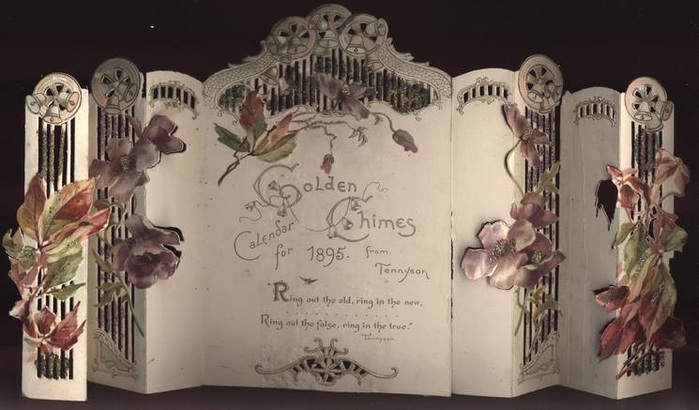 Golden
Chimes
Calendar
for 1895. from
Tennyson
"Ring out the old, ring in the new,
. . . . . . . . . . . .
Ring out the false, ring in the true."
Tennyson.